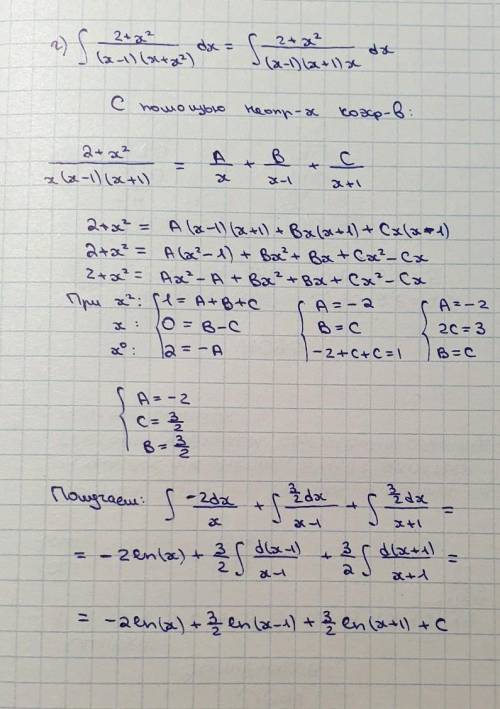 г) ∫ (2+x²)/((x-1)(x+x²)) dx = ∫ (2+x²)/((x-1)(x+1)x) dx
С помощью неопр-х коэф-в:
(2+x²)/(x(x-1)(x+1)) = A/x + B/(x-1) + C/(x+1)
2+x² = A(x-1)(x+1) + Bx(x+1) + Cx(x-1)
2+x² = A(x²-1) + Bx² + Bx + Cx² - Cx
2+x² = Ax² - A + Bx² + Bx + Cx² - Cx
При x²: { 1 = A+B+C { A = -2 { A = -2
x: 0 = B-C B = C 2C = 3
x⁰: 2 = -A -2+C+C = 1 B = C
{ A = -2
C = 3/2
B = 3/2
Получаем: ∫ -2dx/x + ∫ (3/2 dx)/(x-1) + ∫ (3/2 dx)/(x+1) =
= -2ln(x) + 3/2 ∫ d(x-1)/(x-1) + 3/2 ∫ d(x+1)/(x+1) =
= -2ln(x) + 3/2 ln(x-1) + 3/2 ln(x+1) + C